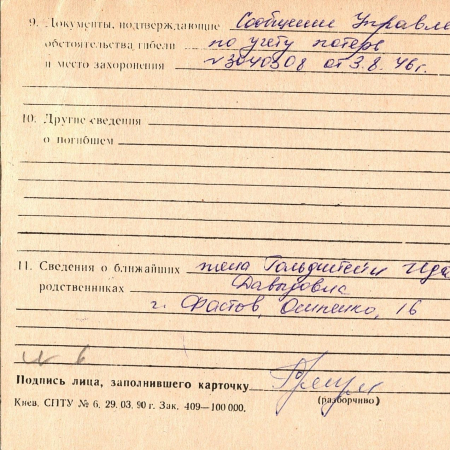 9. Документы, подтверждающие Сообщение Управле
обстоятельства гибели по учету потерь
и место захоронения №3040308 от 3.8.46г.
10. Другие сведения
о погибшем
11. Сведения о ближайших жена Гольдштейн Ида
родственниках Давидовна
г. Фастов, Осипенко, 16
№ 6
Подпись лица, заполнившего карточку
(разборчиво)
Киев. СПТУ № 6. 29. 03. 90 г. Зак. 409—100 000.